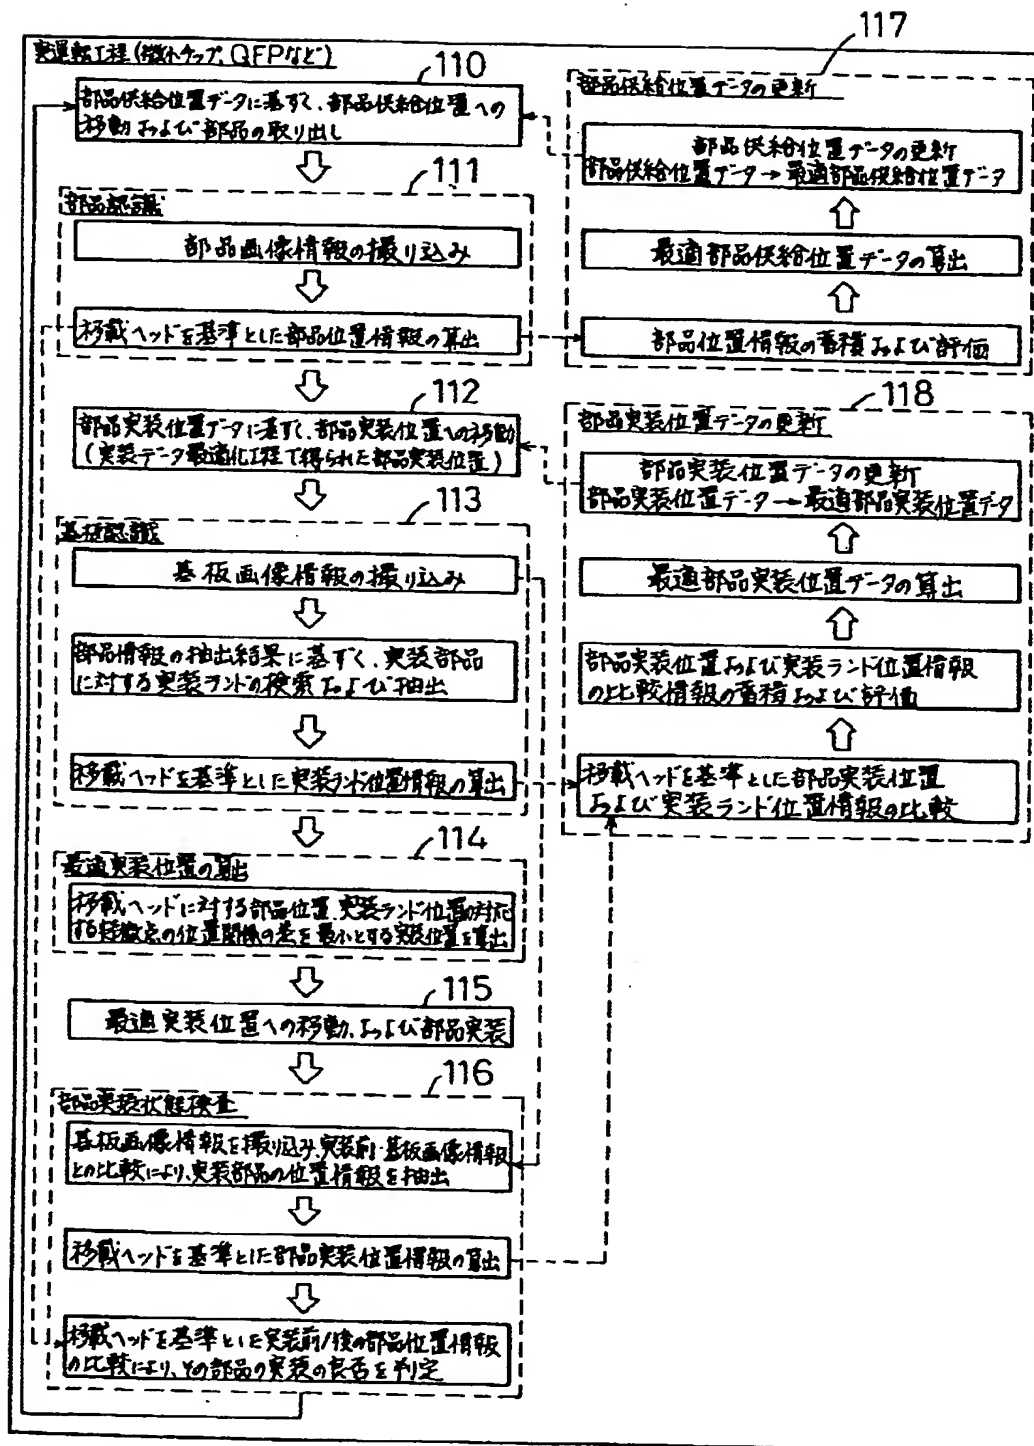 実運転工程(微小チップ、QFPなど)
110
部品供給位置データに基ずく、部品供給位置への
移動および部品の取り出し
111
部品認識
部品画像情報の撮り込み
移載ヘッドを基準とした部品位置情報の算出
112
部品実装位置データに基ずく、部品実装位置への移動
(実装データ最適化工程で得られた部品実装位置)
113
基板認識
基板画像情報の撮り込み
部品情報の抽出結果に基ずく、実装部品
に対する実装ランドの検索および抽出
移載ヘッドを基準とした実装ランド位置情報の算出
114
最適実装位置の算出
移載ヘッドに対する部品位置、実装ランド位置の対応
する特徴点の位置関係の差を最小とする実装位置を算出
115
最適実装位置への移動、および部品実装
116
部品実装状態検査
基板画像情報を撮り込み、実装前・基板画像情報
との比較により、実装部品の位置情報を抽出
移載ヘッドを基準とした部品実装位置情報の算出
移載ヘッドを基準とした実装前/後の部品位置情報
の比較により、その部品の実装の良否を判定
117
部品供給位置データの更新
部品供給位置データの更新
部品供給位置データ→最適部品供給位置データ
最適部品供給位置データの算出
部品位置情報の蓄積および評価
118
部品実装位置データの更新
部品実装位置データの更新
部品実装位置データ→最適部品実装位置データ
最適部品実装位置データの算出
部品実装位置および実装ランド位置情報
の比較情報の蓄積および評価
移載ヘッドを基準とした部品実装位置
および実装ランド位置情報の比較